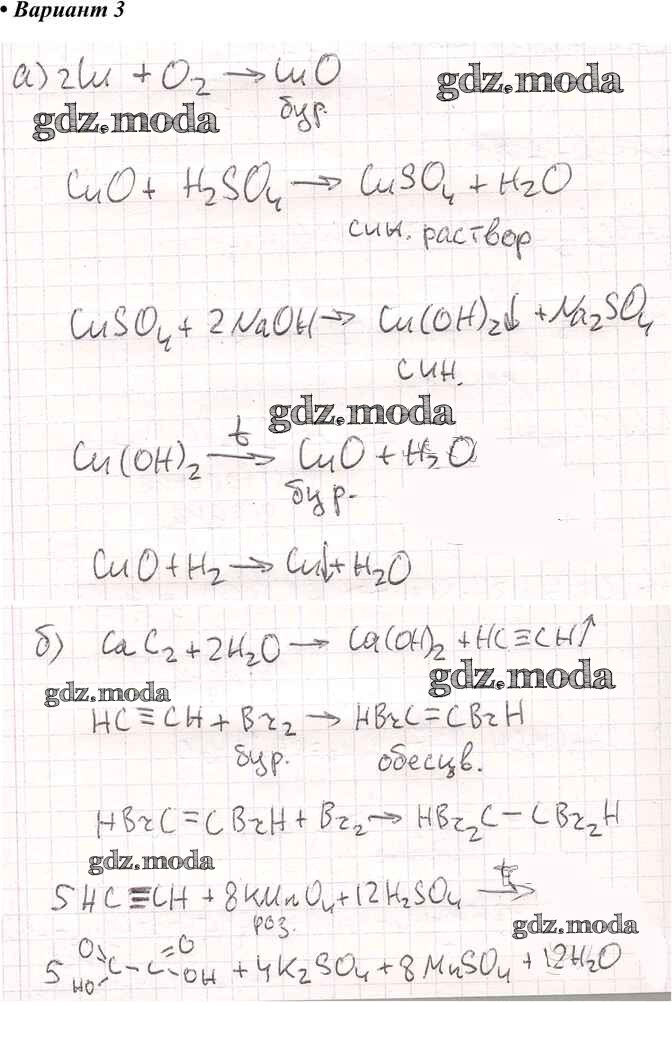 • Вариант 3
а) 2Cu + O₂ → CuO
gdz.moda
бур.
gdz.moda
CuO + H₂SO₄ → CuSO₄ + H₂O
син. раствор
CuSO₄ + 2NaOH → Cu(OH)₂↓ + Na₂SO₄
син.
gdz.moda
Cu(OH)₂ →t CuO + H₂O
бур-
CuO + H₂ → Cu↓ + H₂O
б) CaC₂ + 2H₂O → Ca(OH)₂ + HC≡CH↑
gdz.moda
gdz.moda
HC≡CH + Br₂ → HBrC=CBrH
бур. обесцв.
HBrC=CBrH + Br₂ → HBr₂C–CBr₂H
gdz.moda
5HC≡CH + 8KMnO₄ + 12H₂SO₄ →t
роз.
gdz.moda
5 O HO C–C =O OH + 4K₂SO₄ + 8MnSO₄ + 12H₂O